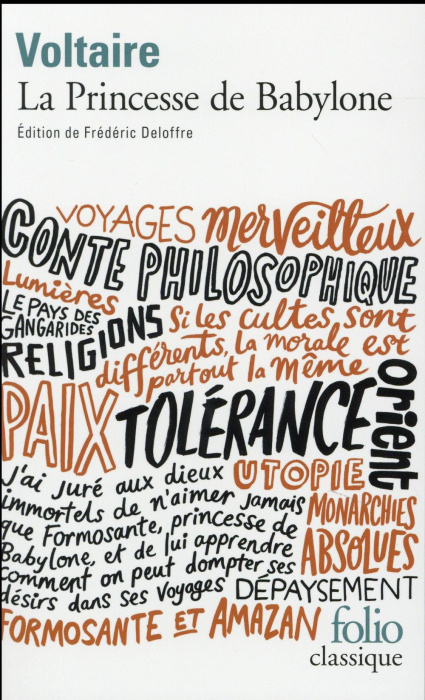 Voltaire
La Princesse de Babylone
Édition de Frédéric Deloffre
VOYAGES merveilleux
CONTE PHILOSOPHIQUE
Lumières
LE PAYS DES
GANGARIDES
RELIGIONS
Si les cultes sont
différents, la morale est
partout la même
PAIX
TOLÉRANCE
orient
J'ai juré aux dieux
immortels de n'aimer jamais
que Formosante, princesse de
Babylone, et de lui apprendre
comment on peut dompter ses
désirs dans ses voyages
UTOPIE
MONARCHIES
ABSOLUES
DÉPAYSEMENT
FORMOSANTE ET AMAZAN
folio
classique